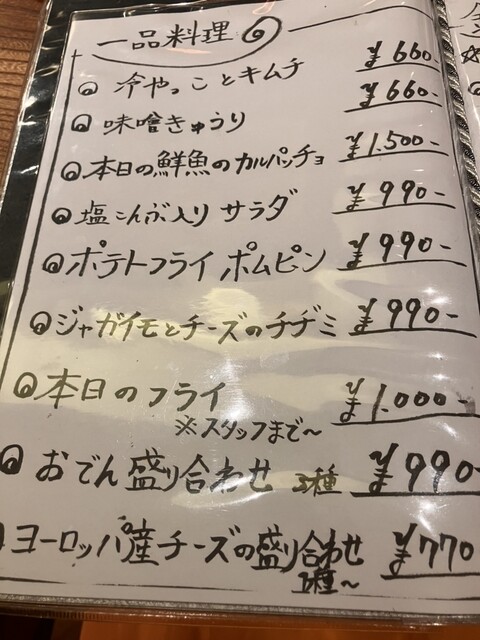 一品料理
冷やっことキムチ ¥660-
味噌きゅうり ¥660-
本日の鮮魚のカルパッチョ ¥1.500-
塩こんぶ入りサラダ ¥990-
ポテトフライ ポムピン ¥990-
ジャガイモとチーズのチヂミ ¥990-
本日のフライ ¥1.000-
※スタッフまで〜
おでん盛り合わせ 3種 ¥990-
ヨーロッパ産チーズの盛り合わせ ¥770
種〜